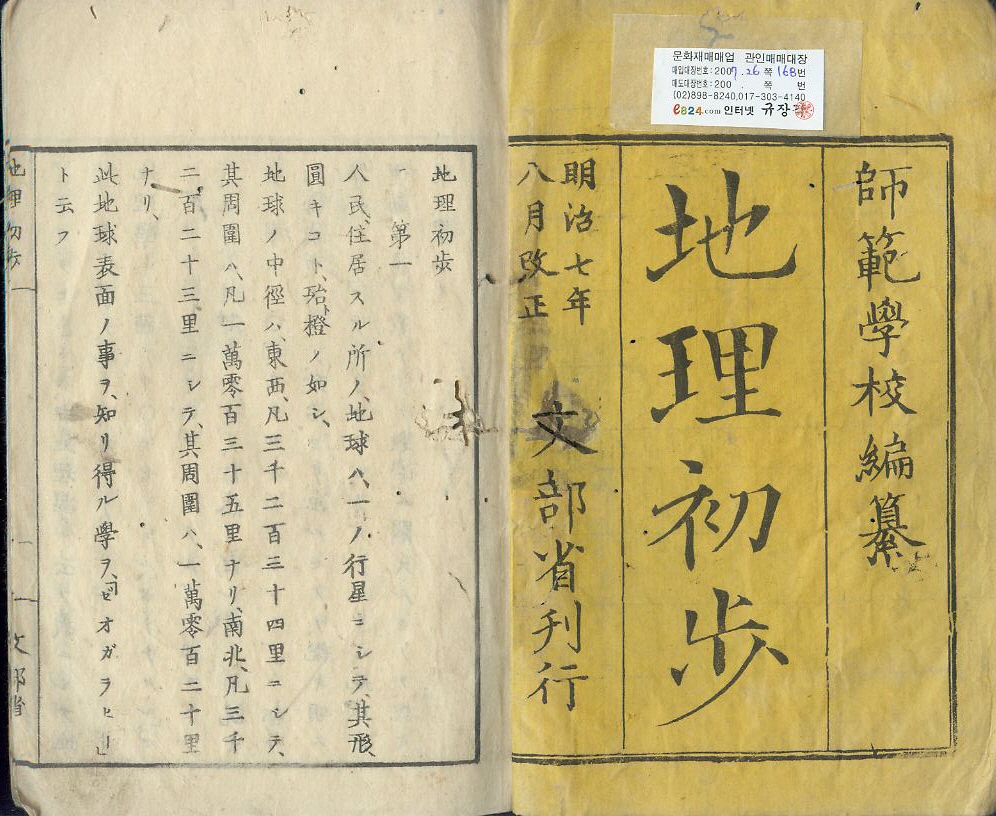 문화재매매업 관인매매대장
매입대장번호:2007.26쪽168번
매도대장번호:200 . 쪽 번
(02)898-8240,017-303-4140
e824.com 인터넷 규장각
師範學校編纂
地理初步
明治七年
八月改正
文部省刊行
地理初步
第一
人民、住居スル所ノ、地球ハ、一ノ行星ニシテ、其形、
圓キコト、殆橙ノ如シ、
地球ノ中徑ハ、東西、凡三千二百三十四里ニシテ、
其周圍ハ、凡一萬零百三十五里ナリ、南北、凡三千
二百二十三里ニシテ、其周圍ハ、一萬零百二十里
ナリ、
此地球表面ノ事ヲ、知リ得ル學ヲ、ゼオガラヒー
ト云フ
地理初步 一 文部省